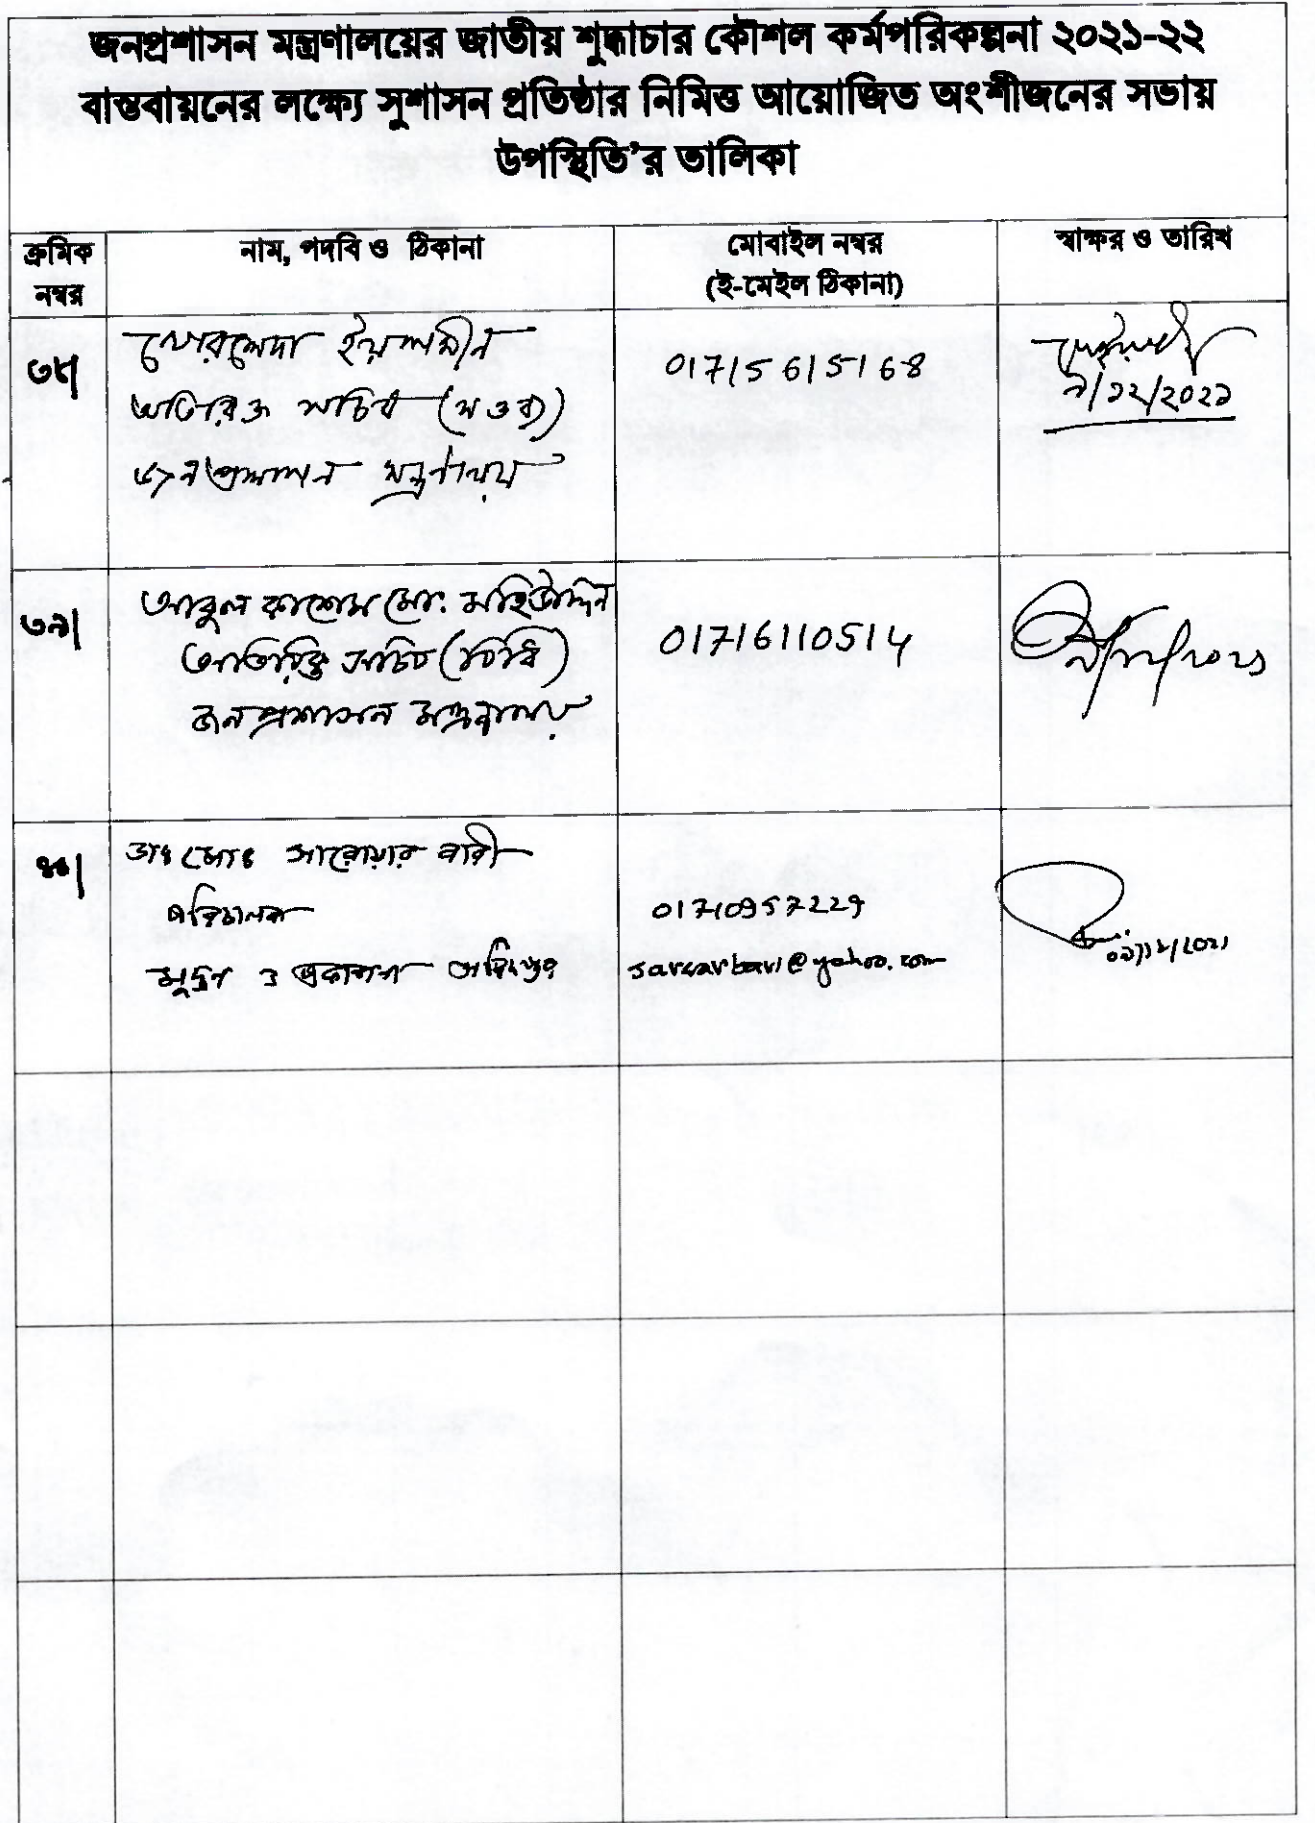 জনপ্রশাসন মন্ত্রণালয়ের জাতীয় শুদ্ধাচার কৌশল কর্মপরিকল্পনা ২০২১-২২
বাস্তবায়নের লক্ষ্যে সুশাসন প্রতিষ্ঠার নিমিত্ত আয়োজিত অংশীজনের সভায়
উপস্থিতি’র তালিকা
ক্রমিক নম্বর
নাম, পদবি ও ঠিকানা
মোবাইল নম্বর
(ই-মেইল ঠিকানা)
স্বাক্ষর ও তারিখ
৩৮|
খোরশেদা ইয়াসমীন
অতিরিক্ত সচিব (স ও ব্য)
জনপ্রশাসন মন্ত্রণালয়
01715615168
৯/১২/2021
৩৯|
আবুল কাশেম মো: মহিউদ্দিন
অতিরিক্ত সচিব (বিধি)
জনপ্রশাসন মন্ত্রণালয়
01716110514
৯/১২/২০২১
৪০|
ডাঃ মোঃ সারোয়ার বারী
পরিচালক
মুদ্রণ ও প্রকাশনা অধিদপ্তর
01710957229
sarwarbari@yahoo.com
০৯/১২/২০২১